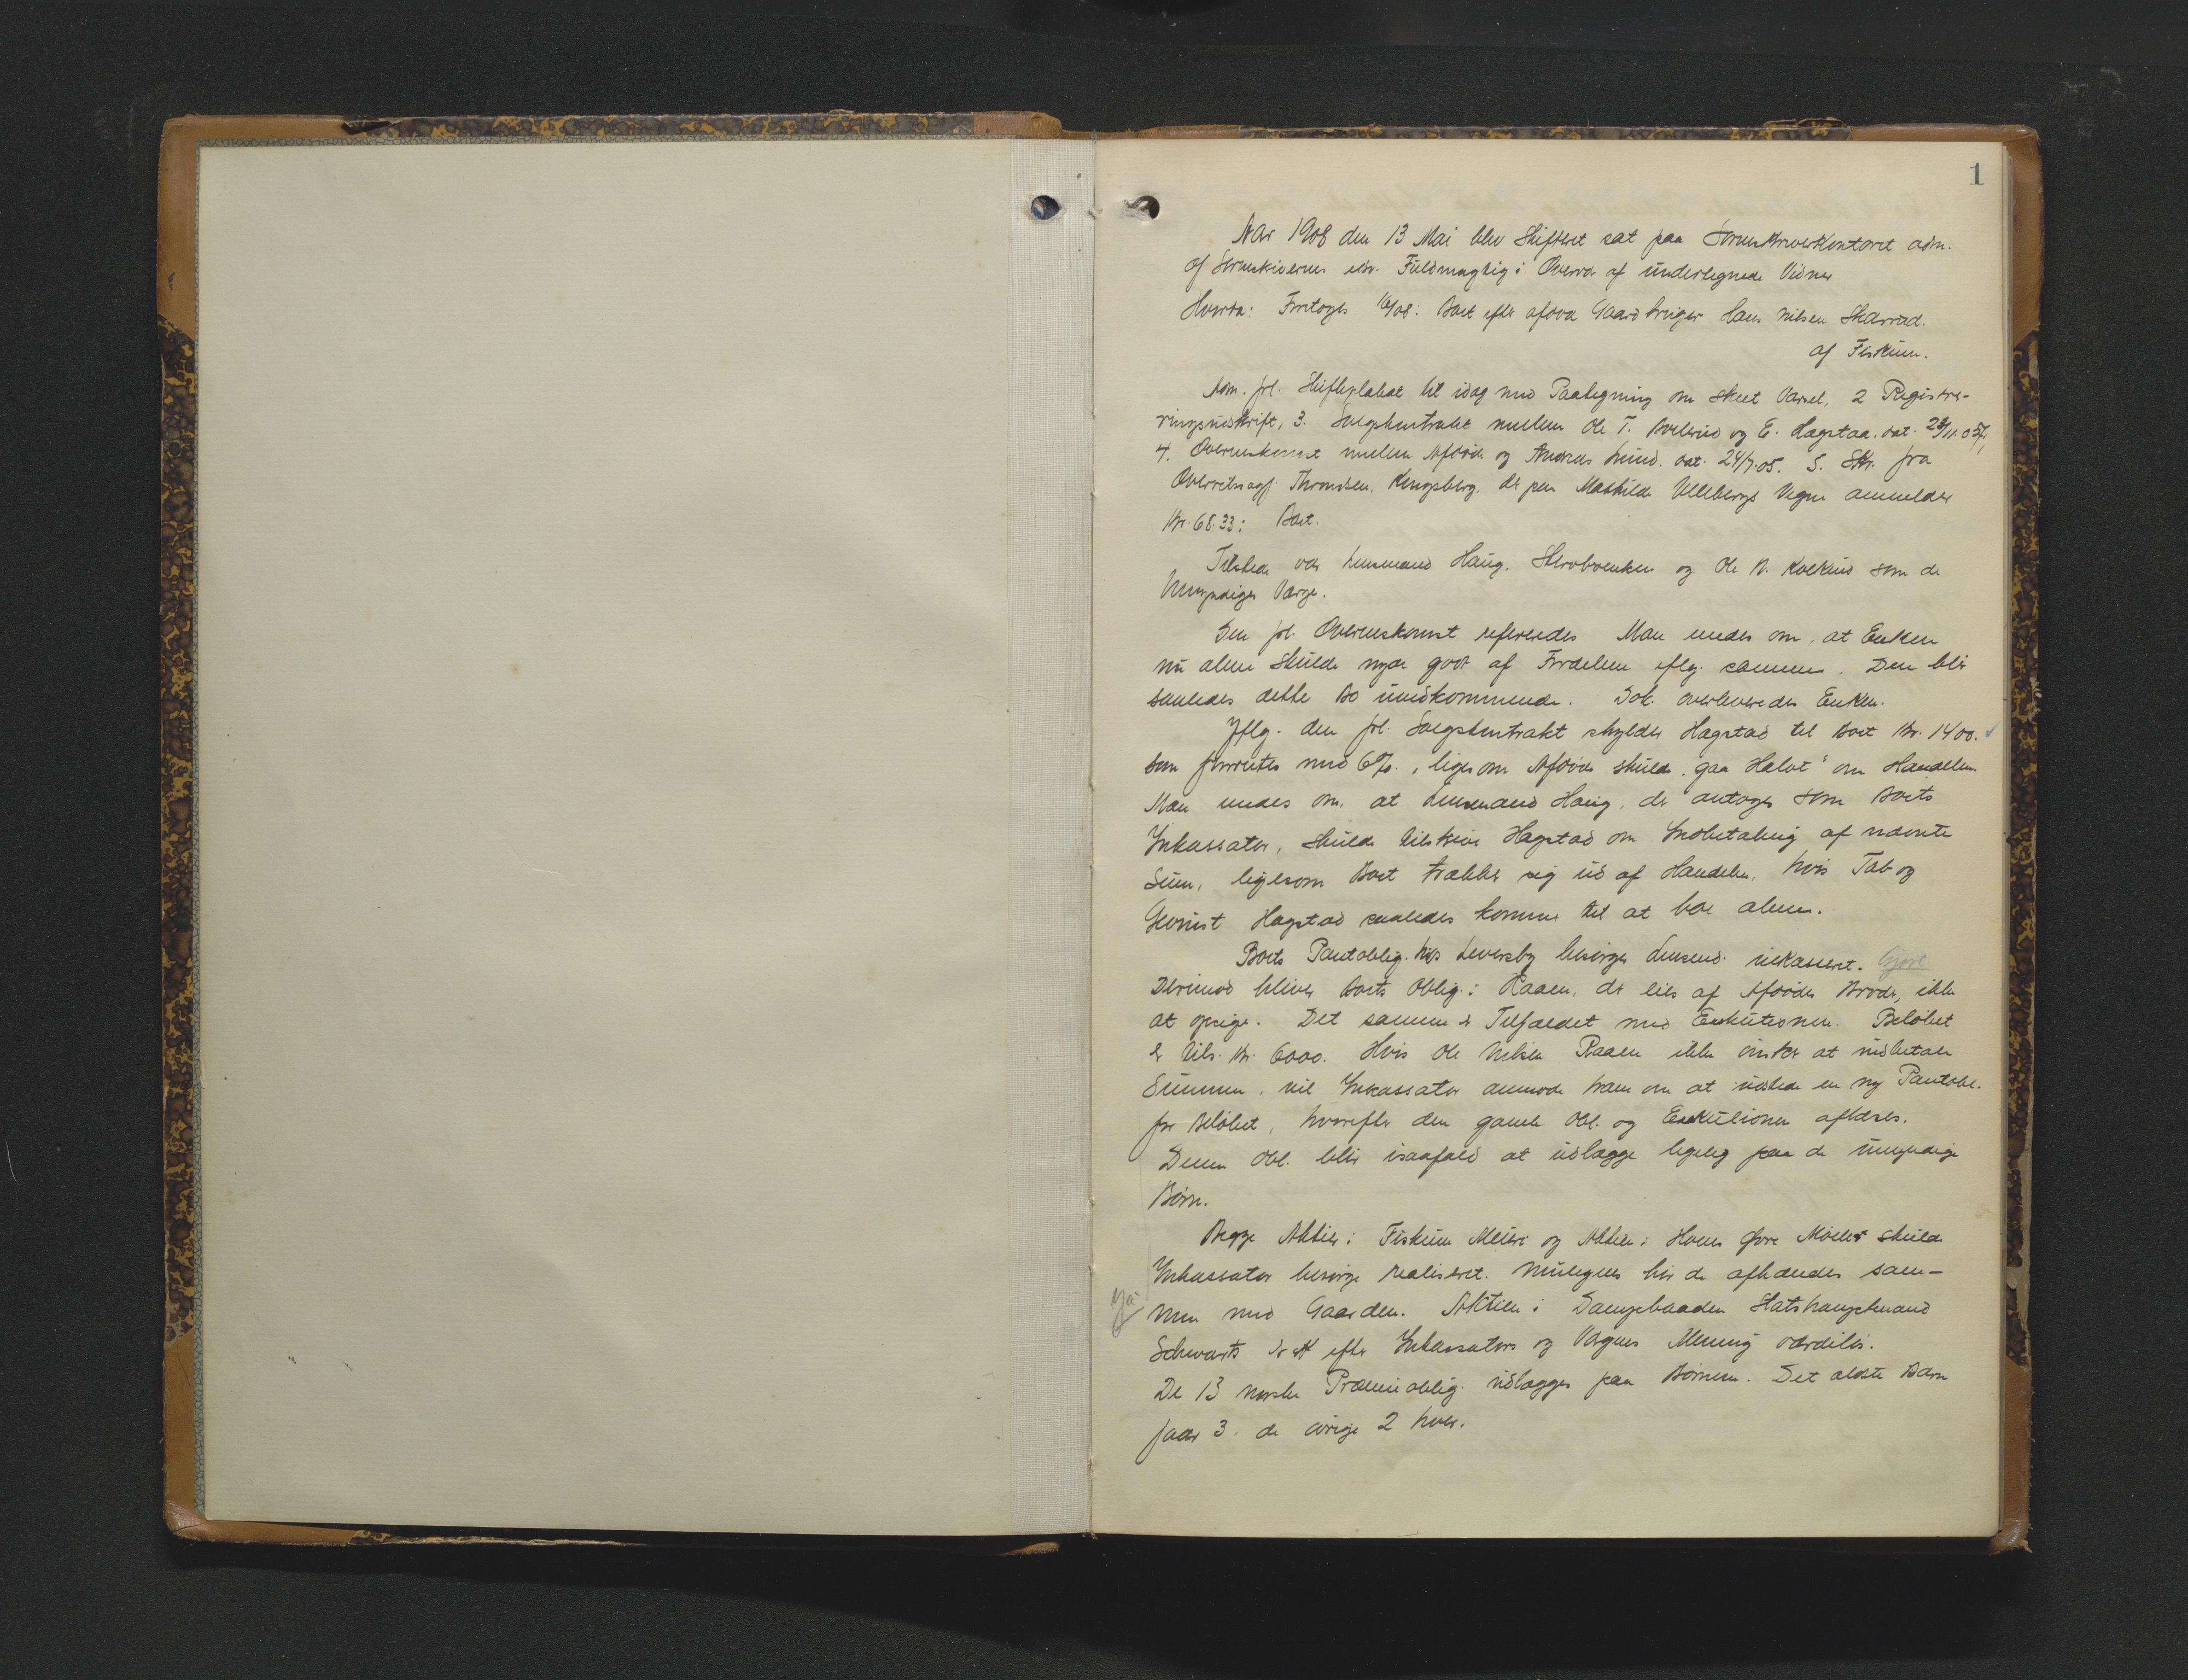 1
Aar 1908 den 13 Mai blev Skifteret sat paa Sorenskriverkontoret adm.
af Sorenskriverens edv. Fuldmægtig i Overvær af undertegnede Vidner
Hvorda: Foretoges 16/08: Boet efter afdøde Gaardbruger Hans Nilsen Skarrud
af Fiskum.
Adm. frl. Skifteplakat til idag med Paategning om skeet Varsel, 2 Registre-
ringsudskrift, 3. Salgskontrakt mellem Ole T. og E. Hagstad dat. 28/11.07,
4. Overenskomst mellem Afdøde og Andreas Lund dat. 24/7.05. 5. Skr. fra
Overretssagf. Throndsen, Kongsberg, der paa Mathilde Vellebergs Vegne anmelder
Kr. 68.33 i Boet.
Tilstede var Lensmand Haug, Skrubbenken og Ole N. som de
Umyndiges Værge.
Den frl. Overenskomst refereredes Man enedes om, at Enken
nu alene skulde nyde godt af Fordelen iflg. samme. Den blir
saaledes dette Bo uvedkommende. Dok. overleveredes Enken.
Iflg. den frl. Salgskontrakt skylder Hagstad til Boet Kr. 1400.
som forrentes med 6%, ligesom Afdøde skulde "gaa Halvt" om Handelen
Man enedes om, at Lensmand Haug, der antoges som Boets
Inkassator, skulde tilskrive Hagstad om Indbetaling af nævnte
Sum, ligesom Boet trækker sig ud af Handelen, hvis Tab og
Gevinst Hagstad saaledes kommer til at bære alene.
Boets Pantoblig. hos Leversby besørger Lensmd. inkasseret. Gjort
Derimod bliver Boets Oblig. i Raaen, der eies af Afdødes Broder, ikke
at opsige. Det samme er Tilfældet med Exekutionen. Beløbet
er tils. Kr. 6000. Hvis Ole Nilsen Raaen ikke ønsker at indbetale
Summen, vil Inkassator anmode ham om at udstede en ny Pantobl.
for Beløbet, hvorefter den gamle Obl. og Exekutionen aflæses.
Denne Obl. blir isaafald at udlægge ligelig paa de umyndige
Børn.
Begge Aktier i Fiskum Meieri og Aktien i Hoens Øvre Mølle skulde
Inkassator besørge realiseret. Muligens bør de afhændes sam-
Ja
men med Gaarden. Aktien i Dampbaaden Statshauptmand
Schwartz er efter Inkassators og Værgens Mening værdiløs.
De 13 norske Præmieoblig. udlægges paa Børnene. Det ældste Barn
faar 3. de øvrige 2 hver.